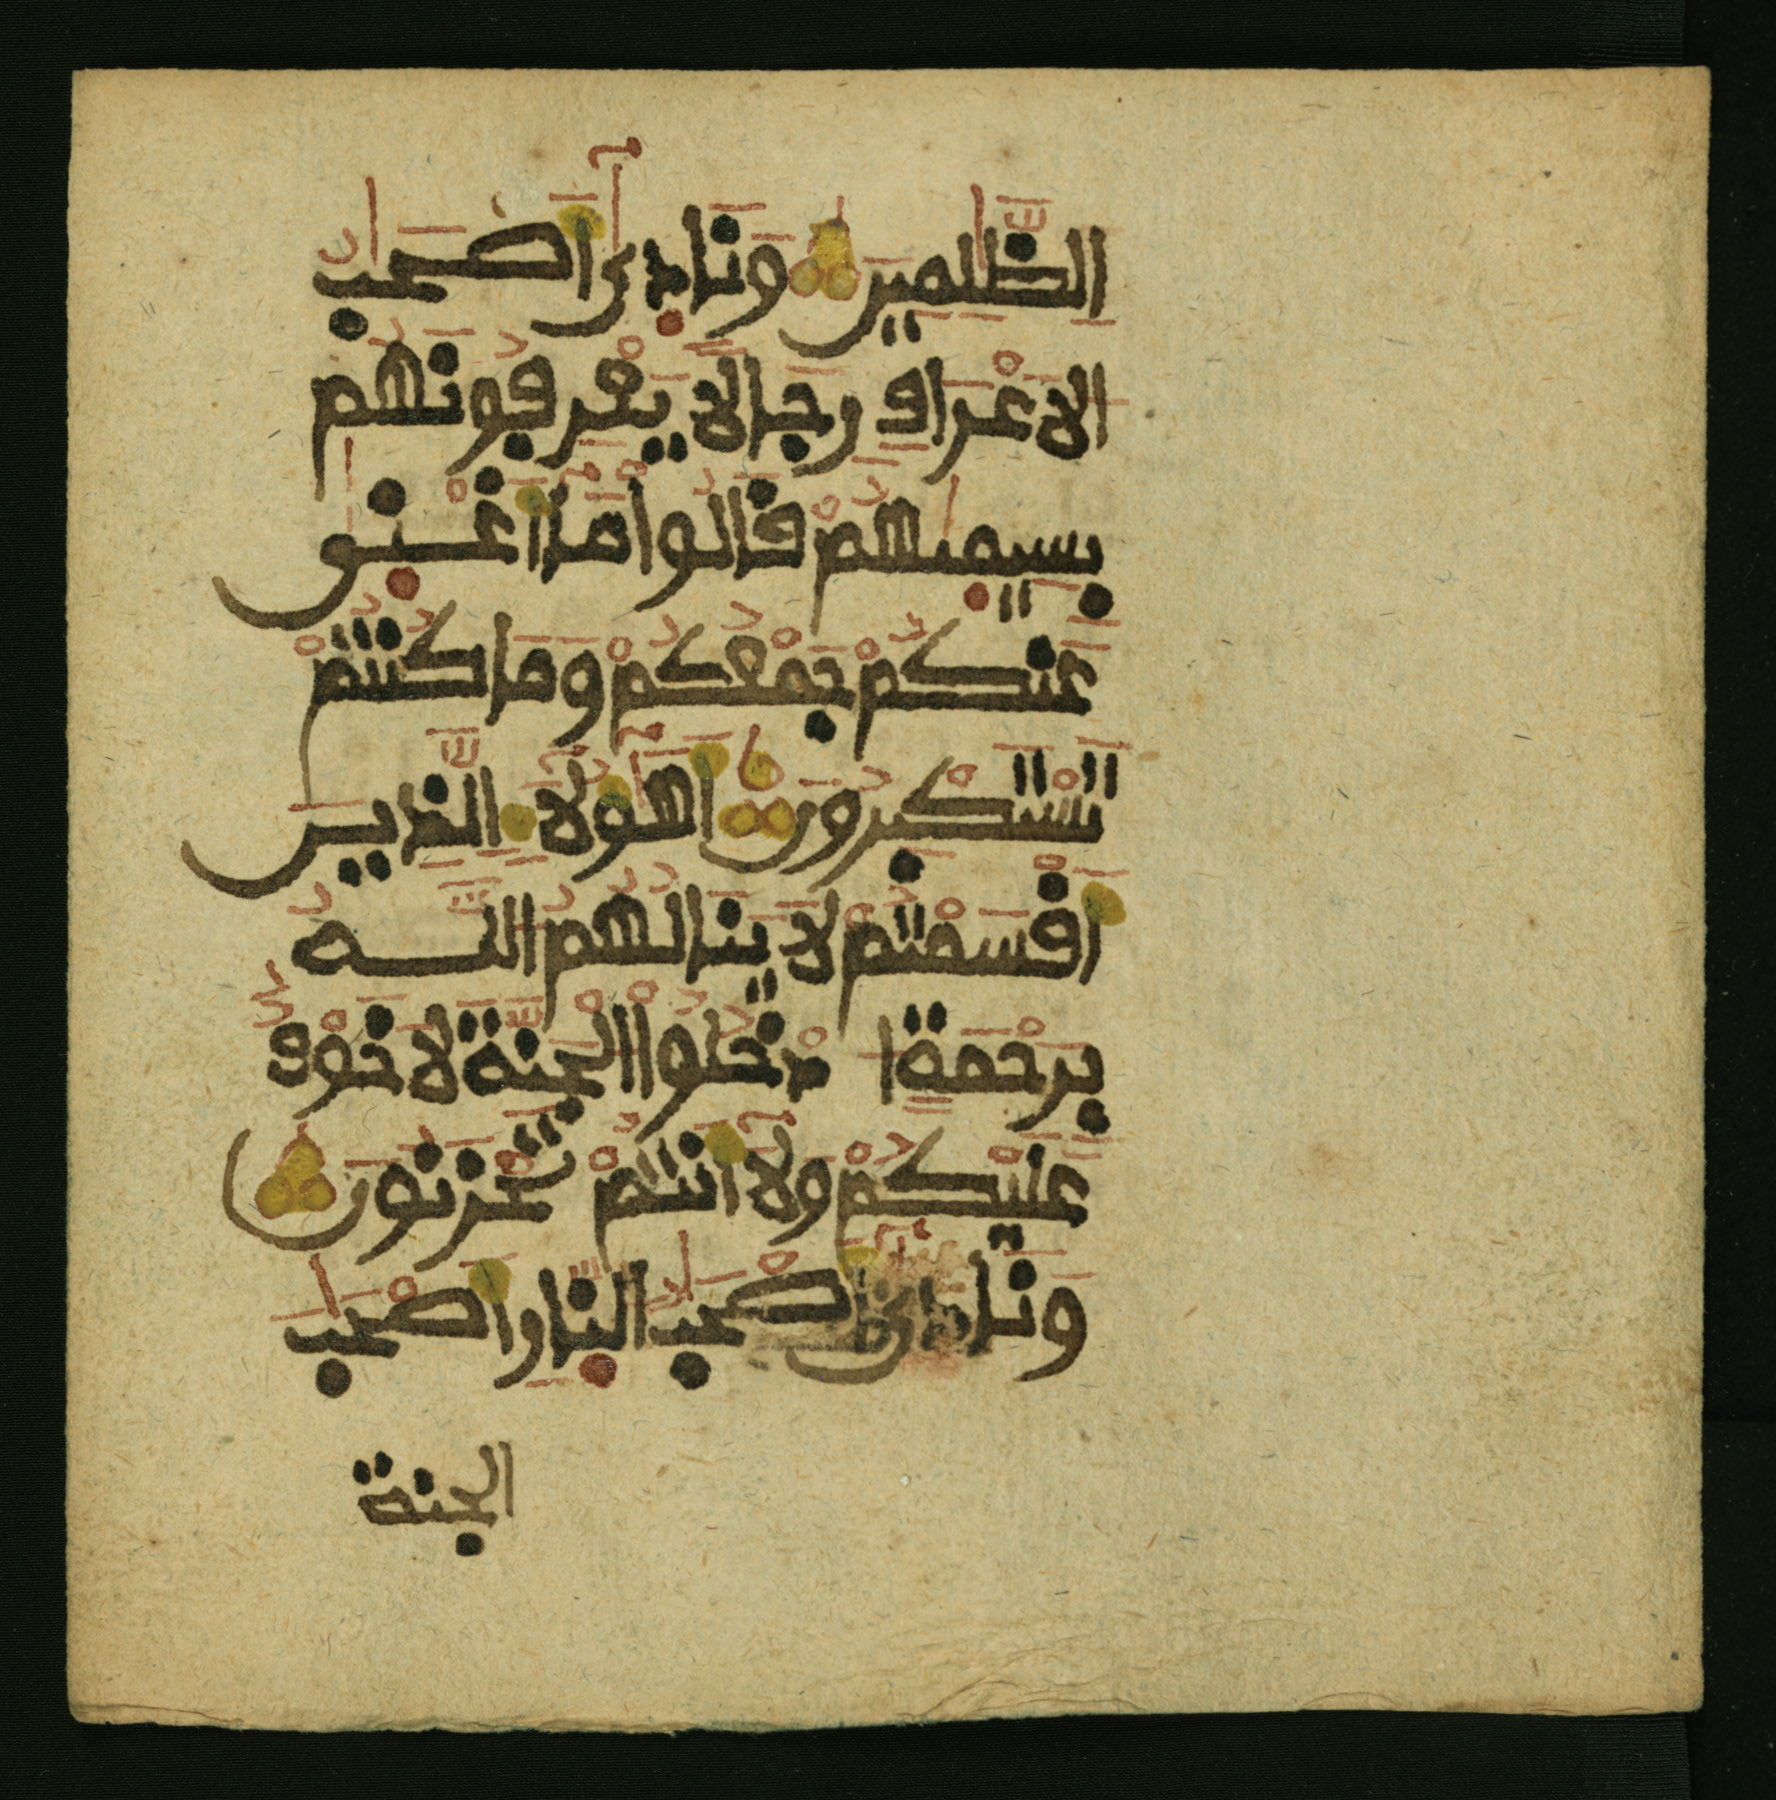 الظلمين ونادى أصحب
الاعراف رجالا يعرفونهم
بسيميهم قالوا ما أغنى
عنكم جمعكم وما كنتم
تستكبرون أهؤلاء الذين
أقسمتم لا ينالهم الله
برحمة ادخلوا الجنة لا خوف
عليكم ولا أنتم تحزنون
ونادى أصحب النار أصحب
الجنة